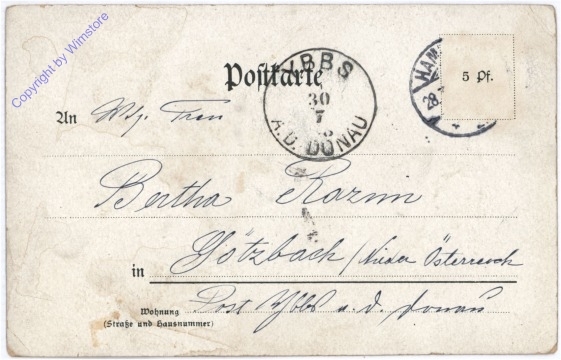 Copyright by Wimstore
YBBS
30
7
A.D. DONAU
HAM
Postkarte
5 Pf.
An
Frau
Bertha
Götzbach / Nieder Österreich
in
Post Ybbs a. d. Donau
Wohnung
(Straße und Hausnummer)